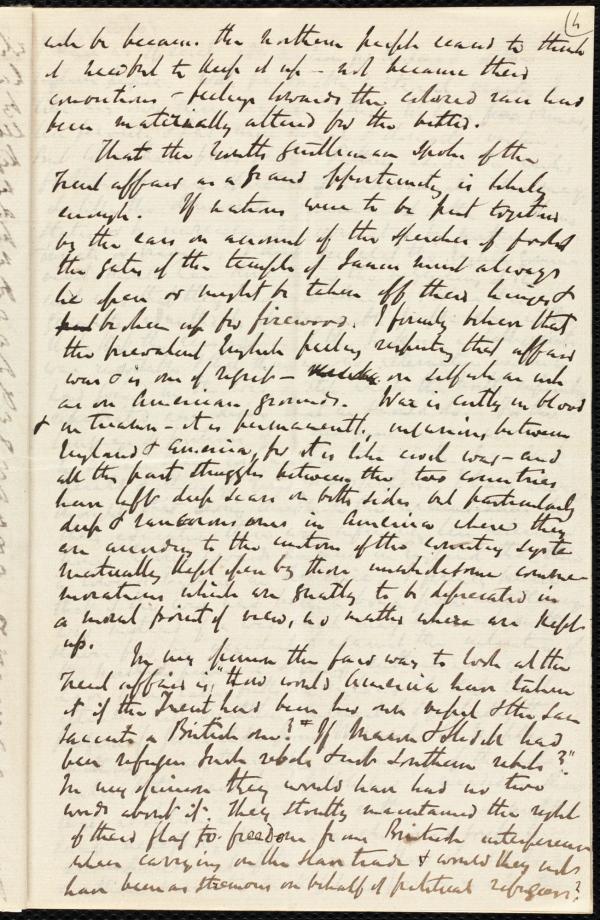 4
because the Northern people seemed to think
it needful to keep it up – not because their
convictions – feelings towards the colored race had
been materially altered for the better.
That the South gentleman spoke of the
Trent affair as a grand opportunity is likely
enough. If nations were to be put together
by the ears on account of the speeches of fools
the gates of the temple of Janus must always
be open or might be taken off their hinges &
be hewn up for firewood. I firmly believe that
the prevalent English feeling respecting that affair
was & is one of regret – on selfish as well
as on American grounds. War is costly in blood
& in treasure – it is permanently injurious between
England & America, for it is like civil war – and
all the past struggles between the two countries
have left deep scars on both sides, but particularly
deep & rancorous ones in America where they
are according to the custom of the country syste
matically kept open by those unwholesome comme
morations which are greatly to be deprecated in
a moral point of view, no matter where are kept
up.
In my opinion the fair way to look at the
Trent affair is, "how would America have taken
it if the Trent had been her own vessel & the San
Jacinto a British one?" If Mason & Slidell had
been refugee Irish rebels & not Southern rebels?"
In my opinion they would have had no two
words about it. They stoutly maintained the right
of their flag to freedom from British interference
when carrying on the slave trade & would they not
have been as strenuous on behalf of political refugees?